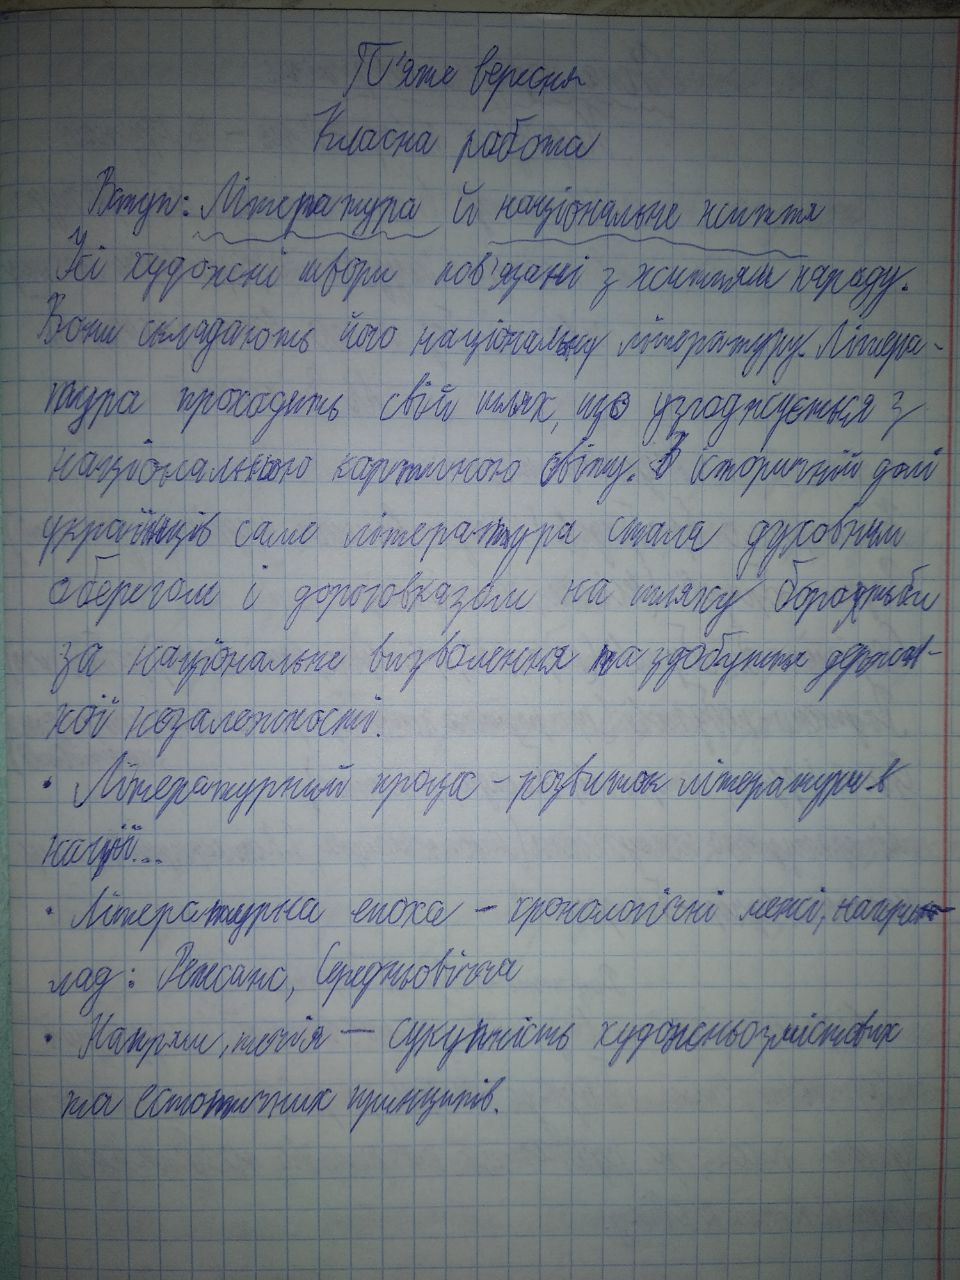 П'яте вересня
Класна робота
Вступ: Література й національне життя
Усі художні твори пов'язані з життям народу.
Вони складають його національну літературу. Літера-
тура проходить свій шлях, що узгоджується з
національною картиною світу. В історичній долі
українців саме література стала духовним
оберегом і дороговказом на шляху боротьби
за національне визволення та здобуття держав-
ної незалежності.
• Літературний процес - розвиток літератури в
нації...
• Літературна епоха - хронологічні межі, наприк-
лад: Ренесанс, Середньовіччя
• Напрям, течія — сукупність художньозмістових
та естетичних принципів.